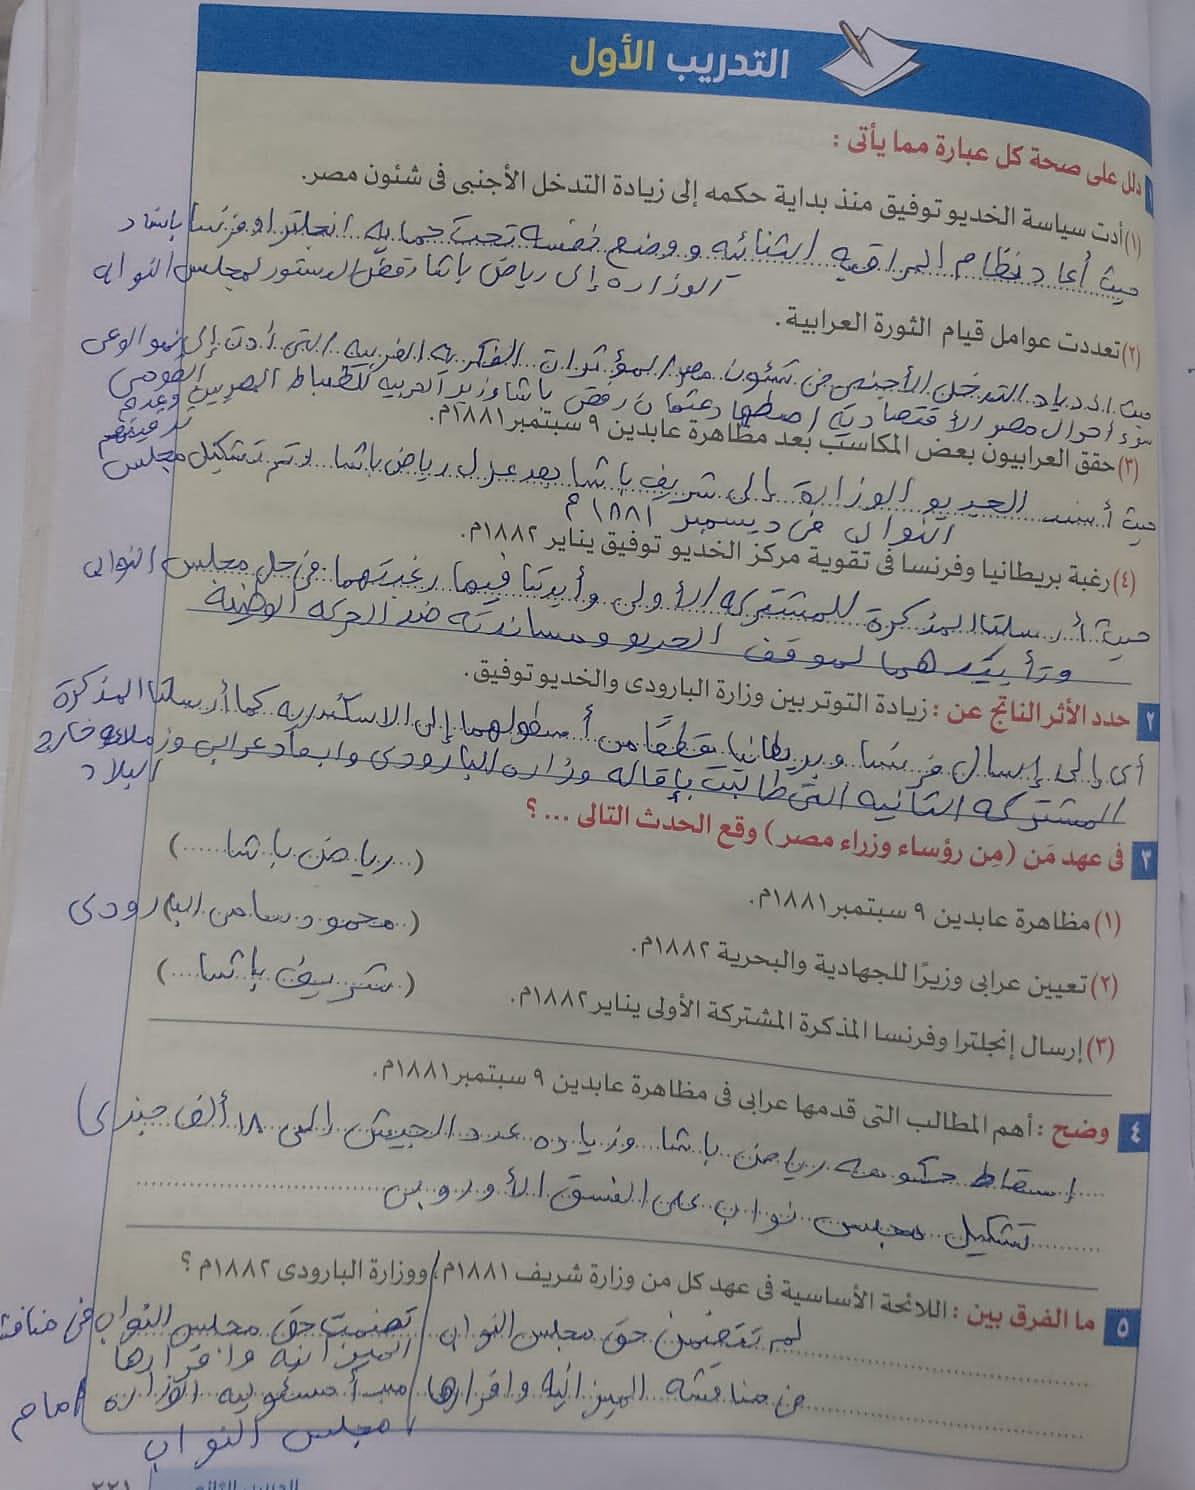 التدريب الأول
١ دلل على صحة كل عبارة مما يأتى :
(١) أدت سياسة الخديو توفيق منذ بداية حكمه إلى زيادة التدخل الأجنبى فى شئون مصر.
حيث أعاد نظام المراقبه الثنائيه ووضع نفسه تحت حمايه انجلترا وفرنسا باسناد
الوزاره إلى رياض باشا رفض الدستور لمجلس النواب
(٢) تعددت عوامل قيام الثورة العرابية.
حيث ازدياد التدخل الأجنبى فى شئون مصر المؤثرات الفكريه الغربيه التى أدت إلى نمو الوعى القومى
سوء احوال مصر الأقتصاديه اضطهاد عثمان رفقى باشا وزير الحربيه للضباط المصريين وعدم ترقيتهم
(٣) حقق العرابيون بعض المكاسب بعد مظاهرة عابدين ٩ سبتمبر ١٨٨١م.
حيث أسند الخديو الوزارة إلى شريف باشا بعد عزل رياض باشا وتم تشكيل مجلس
النواب فى ديسمبر ١٨٨١م
(٤) رغبة بريطانيا وفرنسا فى تقوية مركز الخديو توفيق يناير ١٨٨٢م.
حيث أرسلتا المذكرة للمشتركه الأولى وأبدتا فيها رغبتهما فى حل مجلس النواب
وتأييدهما لموقف الخديو ومساندته ضد الحركه الوطنية
٢ حدد الأثر الناتج عن : زيادة التوتر بين وزارة البارودى والخديو توفيق.
أدى إلى إرسال فرنسا وبريطانيا قطعًا من أسطولهما إلى الاسكندريه كما أرسلتا المذكرة
المشتركه الثانيه التى طالبت بإقاله وزاره البارودى وابعاد عرابى وزملائه خارج
البلاد
٣ فى عهد مَن (مِن رؤساء وزراء مصر) وقع الحدث التالى ... ؟
(١) مظاهرة عابدين ٩ سبتمبر ١٨٨١م. (رياض باشا)
(٢) تعيين عرابى وزيرًا للجهادية والبحرية ١٨٨٢م. (محمود سامى البارودى
(٣) إرسال إنجلترا وفرنسا المذكرة المشتركة الأولى يناير ١٨٨٢م. (شريف باشا)
٤ وضح : أهم المطالب التى قدمها عرابى فى مظاهرة عابدين ٩ سبتمبر ١٨٨١م.
إسقاط حكومه رياض باشا وزياده عدد الجيش إلى ١٨ ألف جندى)
تشكيل مجلس نواب على النسق الأوروبى
٥ ما الفرق بين : اللائحة الأساسية فى عهد كل من وزارة شريف ١٨٨١م، ووزارة البارودى ١٨٨٢م ؟
لم تتضمن حق مجلس النواب / تضمنت حق مجلس النواب فى مناقشه
الميزانيه واقرارها
فى مناقشه الميزانيه واقرارها / مبدأ مسئوليه الوزاره امام
مجلس النواب
٢٢١